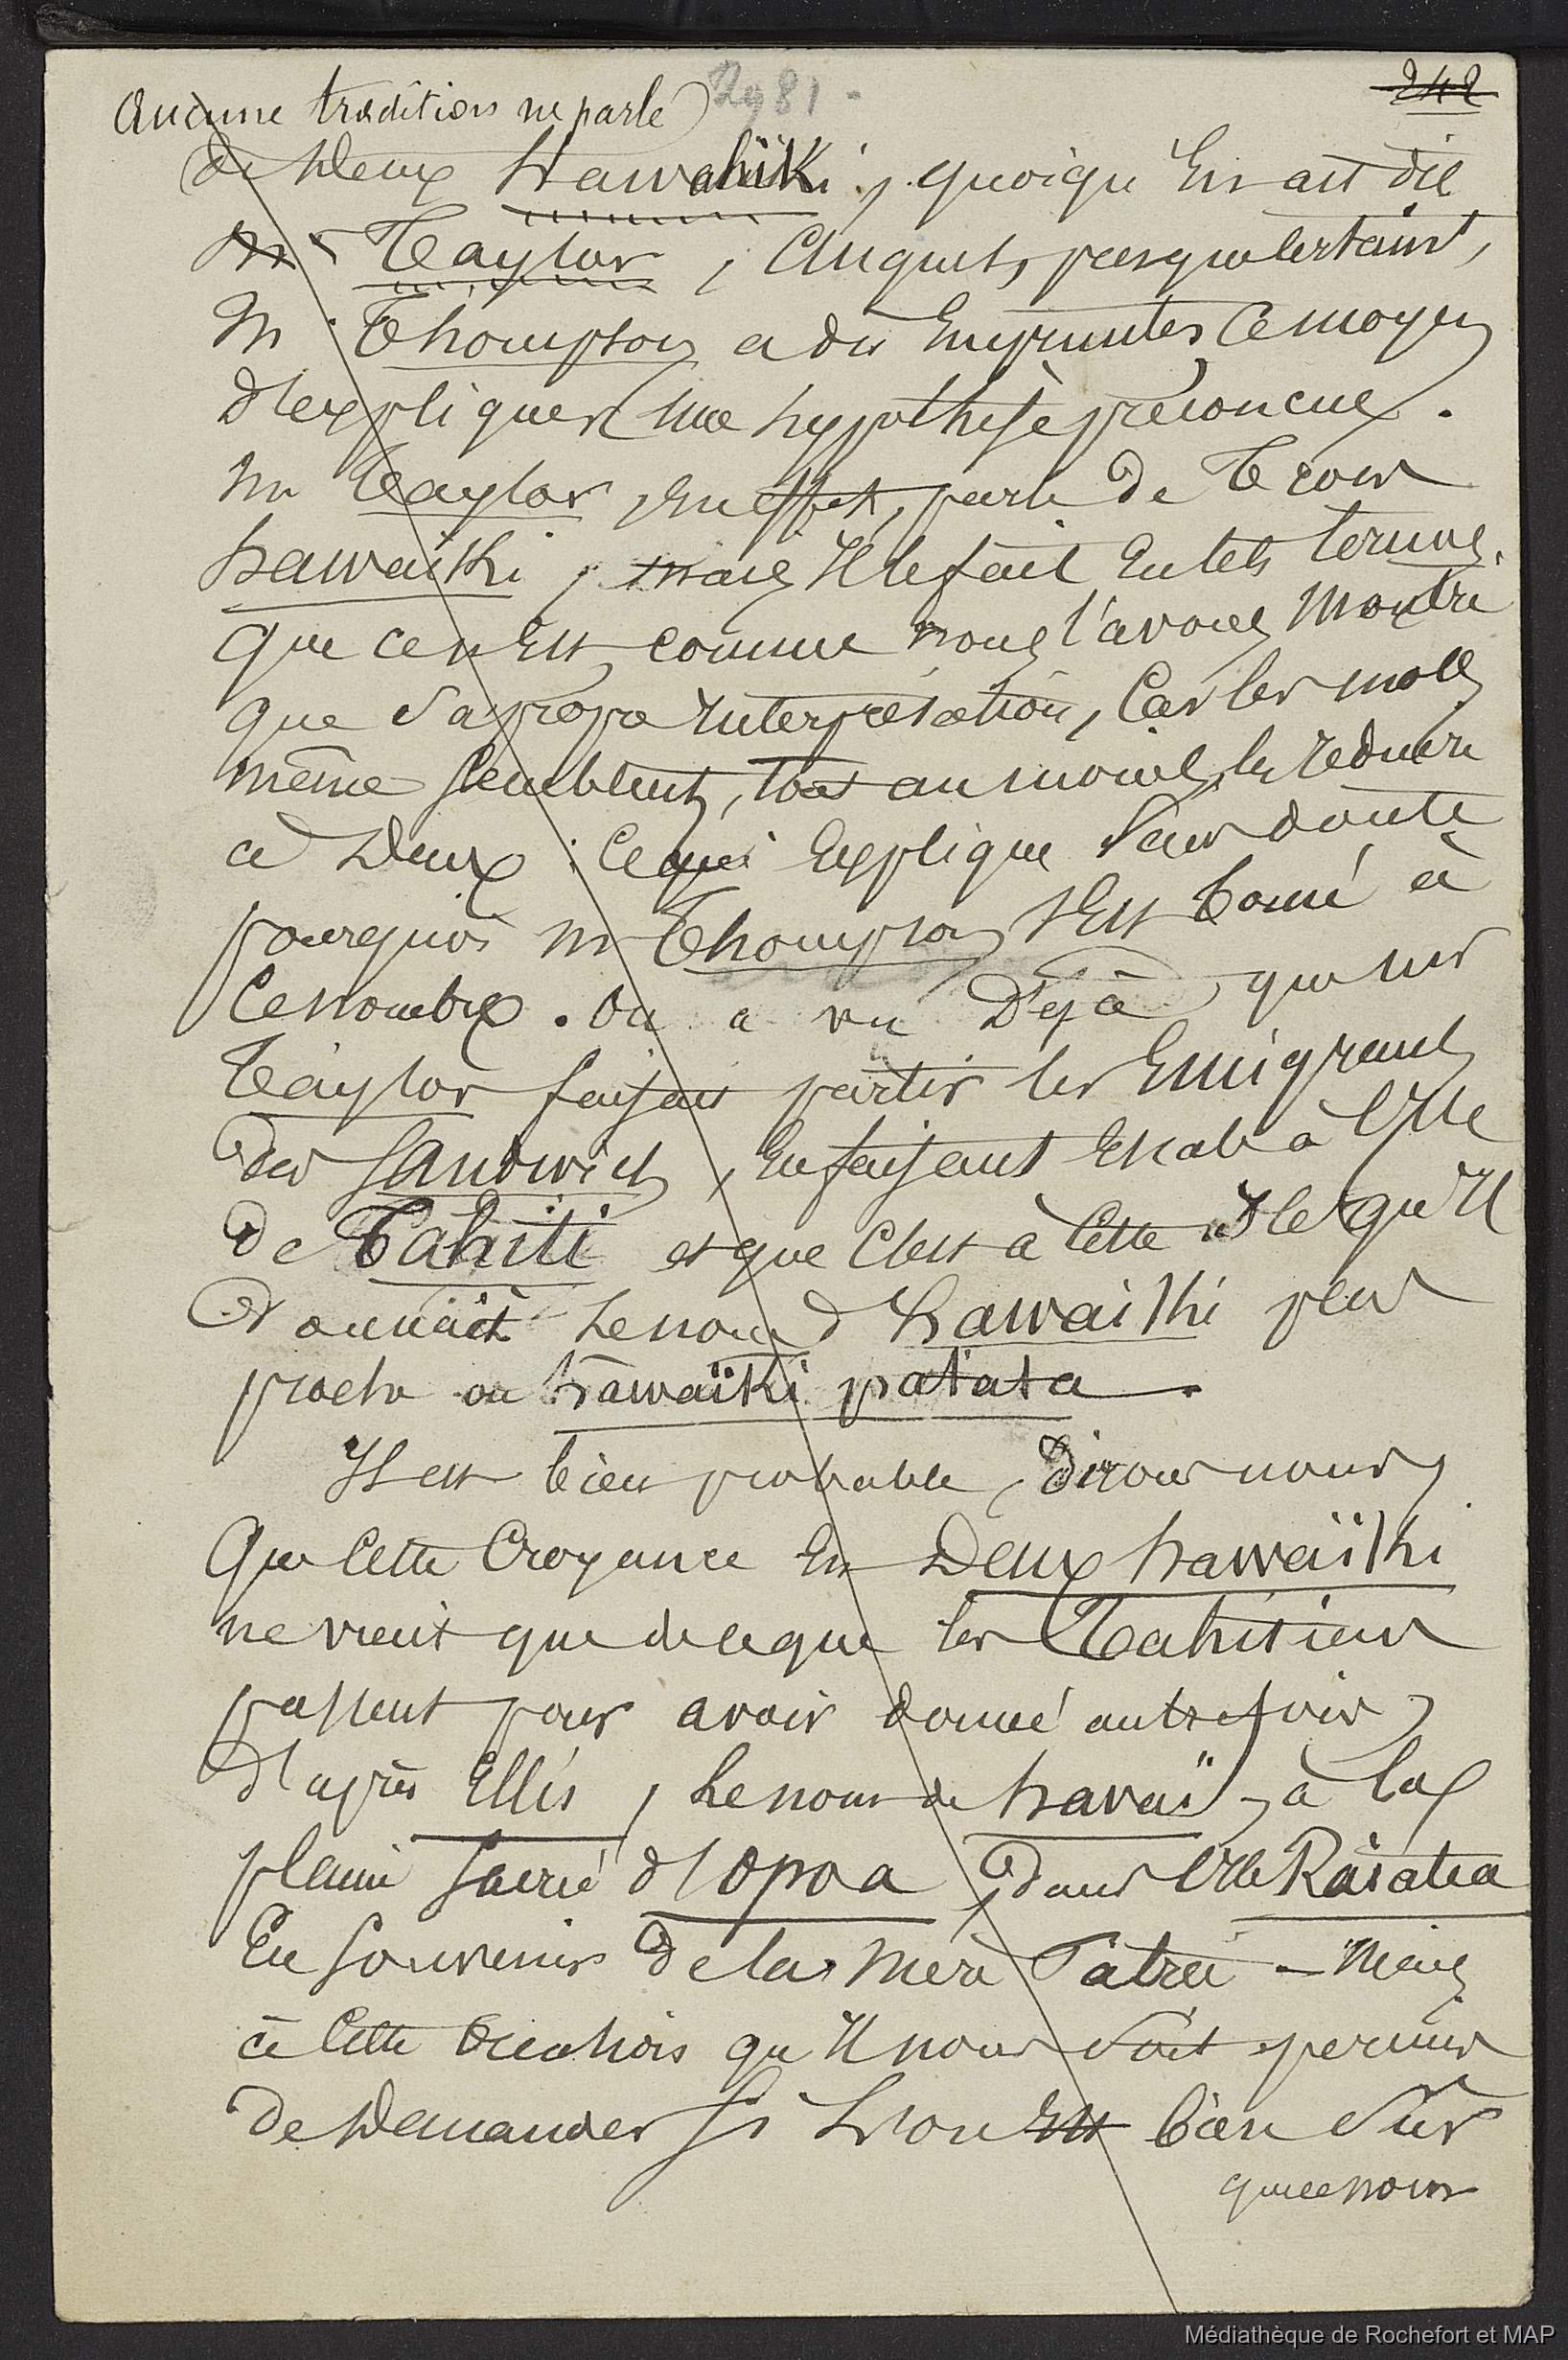 2981 -
242
aucune tradition ne parle
de deux hawahiki, quoiqu'en ait dit
Mr Taylor, auquel, presque certaint,
Mr Thompson a dû emprunter ce moyen
d'expliquer une hypothèse préconcue.
Mr Taylor, en effet, parle de Trois
hawaïki, mais il le fait en tels termes.
que ce n'est, comme nous l'avons montré
que sa propre interprétation, car les mots
même semblent, tout au moins, les réduire
à deux : ce qui explique sans doute
pourquoi Mr Thompson s'est borné à
ce nombre. On a vu déjà que Mr
Taylor faisait partir les Emigrants
des Sandwich, en faisant escale à l'île
de Tahiti et que c'est à cette île qu'il
donnait le nom d'hawaïki plus
proche ou hawaïki patata.
Il est bien probable, dirons nous,
que cette croyance en deux hawaïki
ne vient que de ce que les Tahitiens
passent pour avoir donné autrefois,
d'après Ellis, le nom de havaï, à la
plaine sacrée d'Opoa, dans l'île Raïatea
en souvenir de la mère Patrie - mais
à cette occasion qu'il nous soit permis
de demander si l'on est bien sûr
que ce nom
Médiathèque de Rochefort et MAP